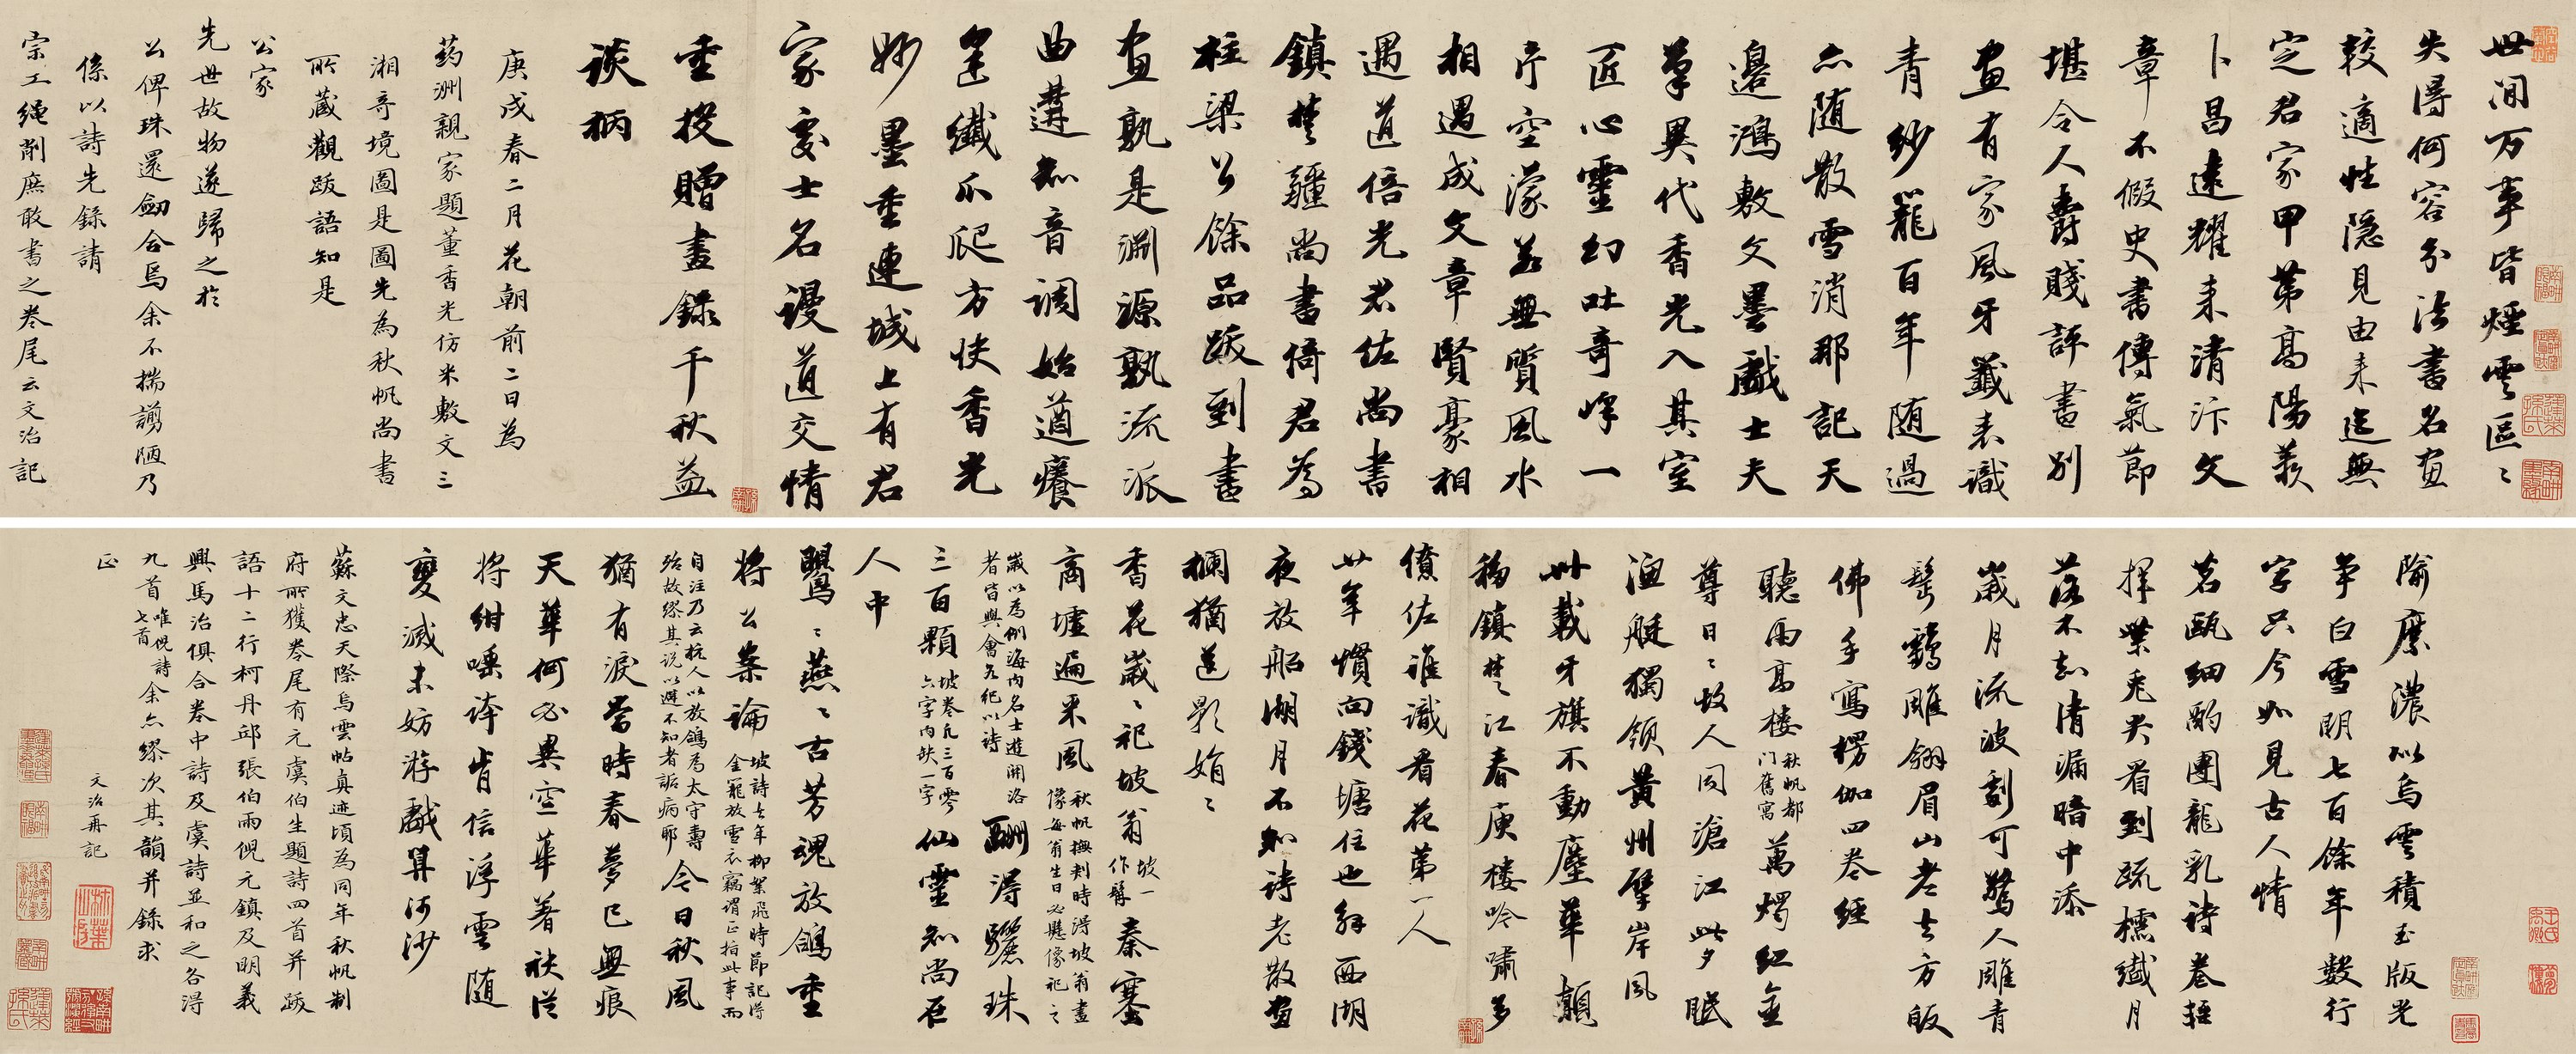 世间万事皆煙雲區〻
失得何容分法書名画
較適性隱見由来迄無
定君家甲第高陽裔
卜昌遠耀来清汴文
章不假史書傳氣節
堪令人爵賤評書別
畫有家風牙籤表識
青紗籠百年随過
亦随散雪消那記天
邊鴻敷文墨戲士夫
筆異代香光入其室
匠心靈幻吐奇峰一
片空濛益無質風水
相遇成文章賢豪相
遇道倍光君佐尚書
鎮楚疆尚書倚君為
柱梁公餘品跋到書
画孰是淵源孰流派
曲遘知音調始遒癢
逢纖爪爬方快香光
妙墨重連城上有君
家處士名謾道交情
重投贈畫錄千秋益
談柄
庚戌春二月花朝前二日為
药洲親家題董香光仿米敷文三
湘奇境圖是圖先為秋帆尚書
所藏觀跋語知是
公家
先世故物遂歸之於
公俾珠還劍合焉余不揣謭陋乃
係以詩先錄請
宗工繩削庶敢書之卷尾云文治記
隃糜濃似烏雲積玉版光
争白雪明七百餘年数行
字只今如見古人情
茗甌細酌團龍乳詩卷輕
揮紫兎尖看到疏櫺纖月
落不知清漏暗中添
歳月流波劃可驚人雕青
髩鶴雕翎眉山老去方皈
佛手寫楞伽四卷經
聽雨高樓秋帆都门舊寓萬燭紅金
尊日〻故人同滄江此夕眠
漁艇獨領黄州擘岸風
卅載牙旗不動塵華顛
移鎮楚江春庾楼吟嘯多
僚佐誰識看花第一人
廿年慣向錢塘住也解西湖
夜放船湖月不知詩老散画
欄猶送影娟〻
香花歳〻祀坡翁坡一作髯秦蹇
商墟遍采風秋帆撫剌時得坡翁畫像每翁生日必懸像祀之
歳以為例海内名士遊關洛者皆與會各紀以詩酬得驪珠
三百顆坡卷凡三百零六字内缺一字仙靈知尚在
人中
鸎〻燕〻古芳魂放鴿重
将公案論坡詩去年柳絮飛時節記得金籠放雪衣竊謂正指此事而
自注乃云杭人以放鴿為太守壽殆故繆其説以避不知者詬病耶今日秋風
猶有淚當時春夢已無痕
天華何必異空華著袂從
将紺唾誇肯信浮雲随
變滅未妨游戲算河沙
蘇文忠天際烏雲帖真迹頃為同年秋帆制
府所獲卷尾有元虞伯生題詩四首并跋
語十二行柯丹邱張伯雨倪元鎮及明義
興馬治俱合卷中詩及虞詩並和之各得
九首唯倪詩七首余亦繆次其韻并録求
正
文治再記